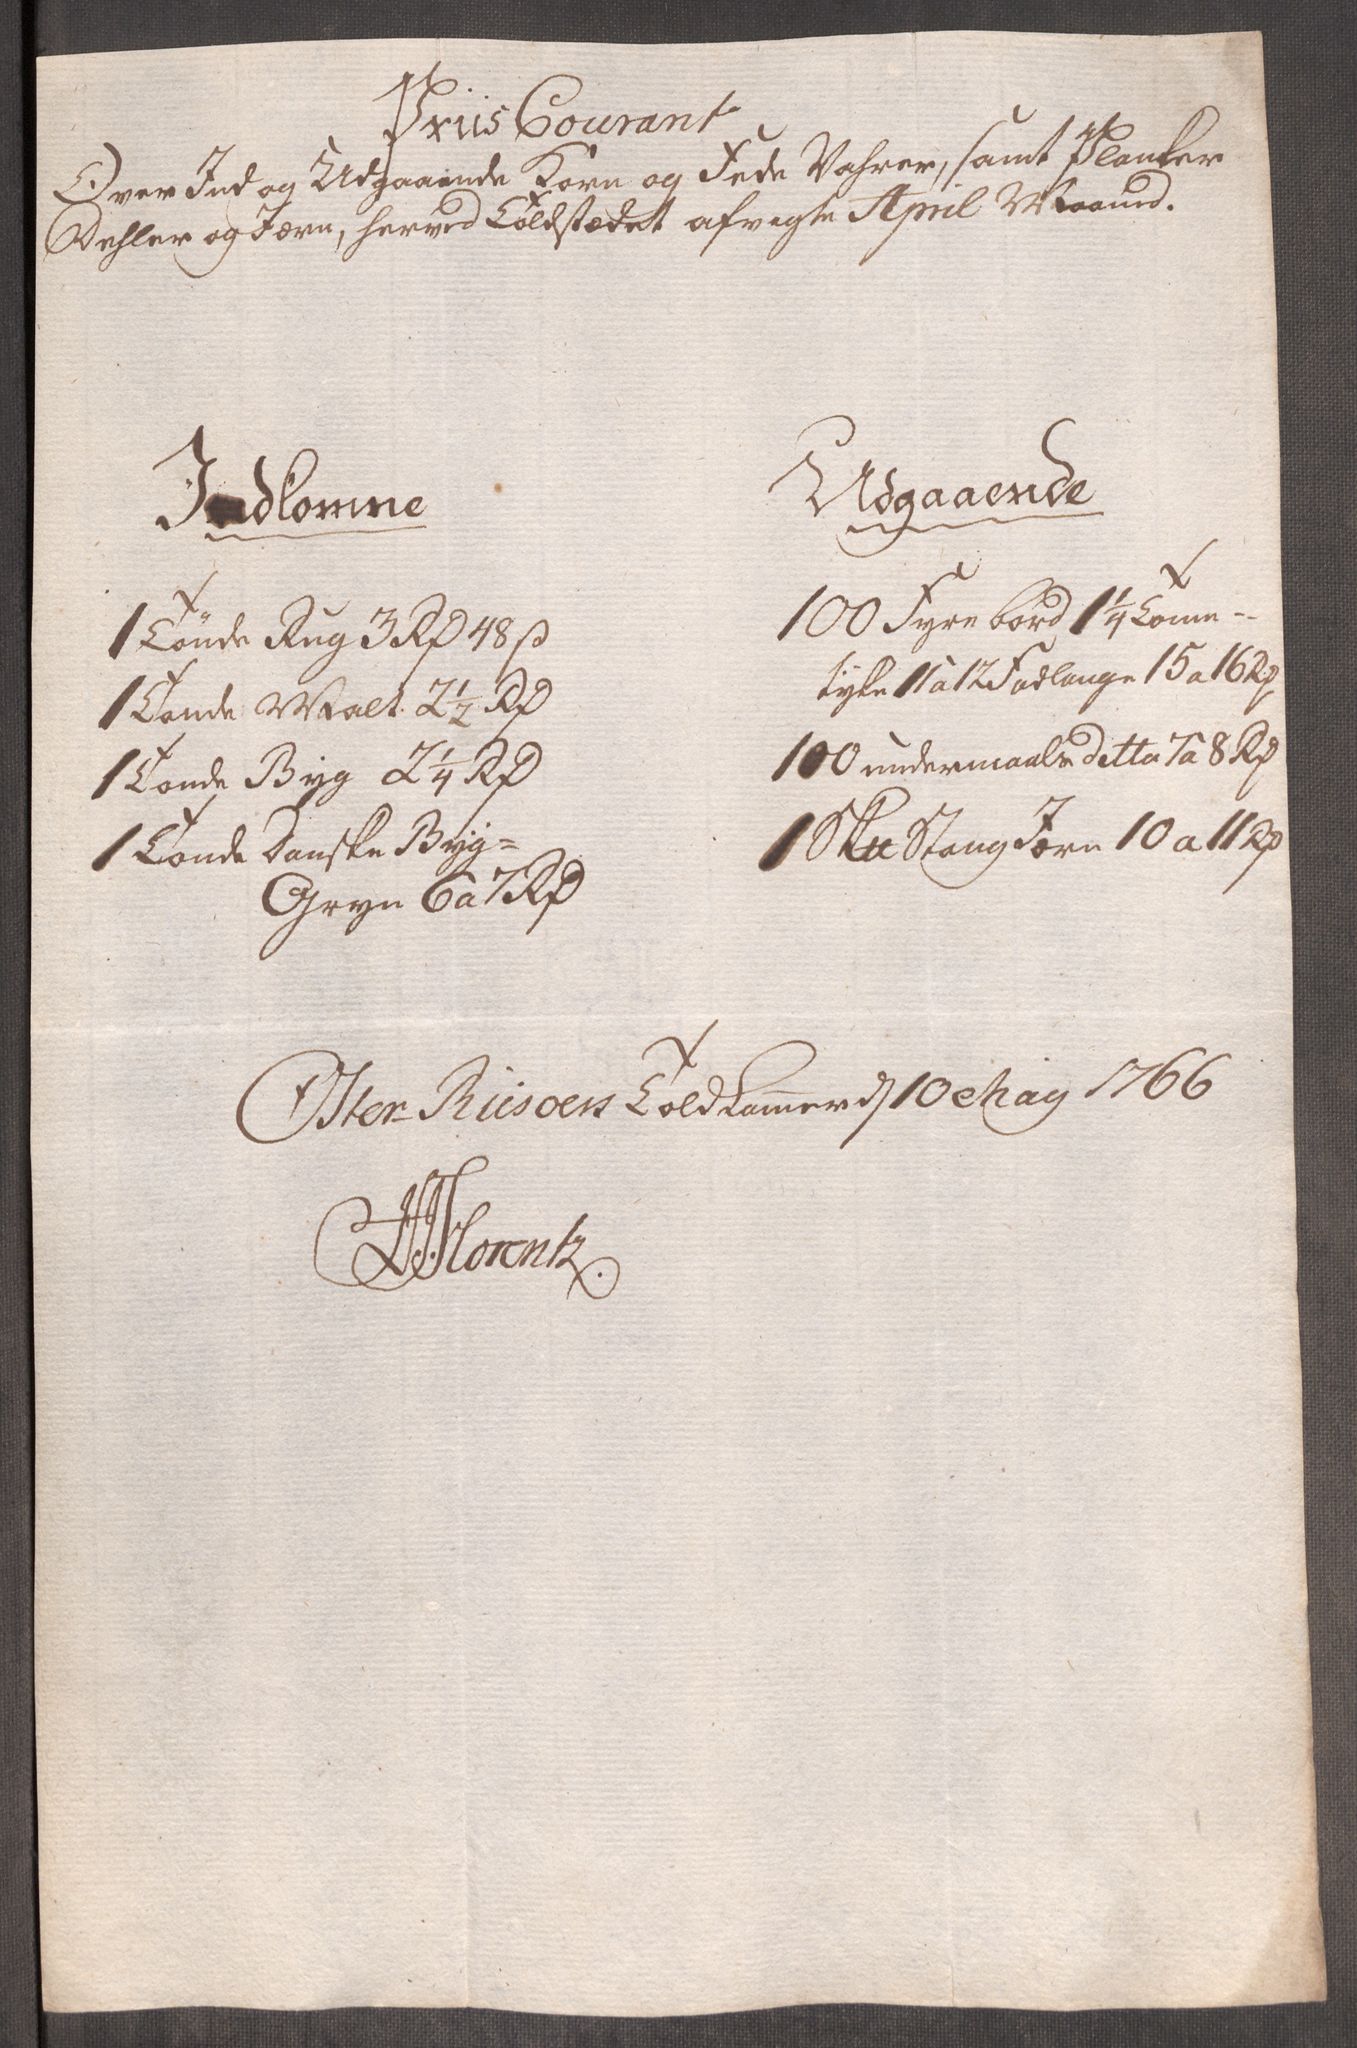 Priis Courant
Over Ind og Udgaaende Korn og Fede Vahrer, samt Planker
Dehler og Jærn, herved Toldstædet afvigte April Maaned.
Indkomne
1 Tönde Rug 3 Rd 48 ß
1 Tønde Malt 2 1/2 Rd
1 Tønde Byg 2 1/4 Rd
1 Tønde Danske Byg=
Gryn 6 a 7 Rd
Udgaaende
100 Fyre bord 1 1/4 Tomme
tyke 11 a 12 Fod lange 15 a 16 Rd
100 undermaals ditto 7 a 8 Rd
1 Sku Stang Jærn 10 a 11 Rd
Oster Riisoers Told Kammer d 10 May 1766
Florentz